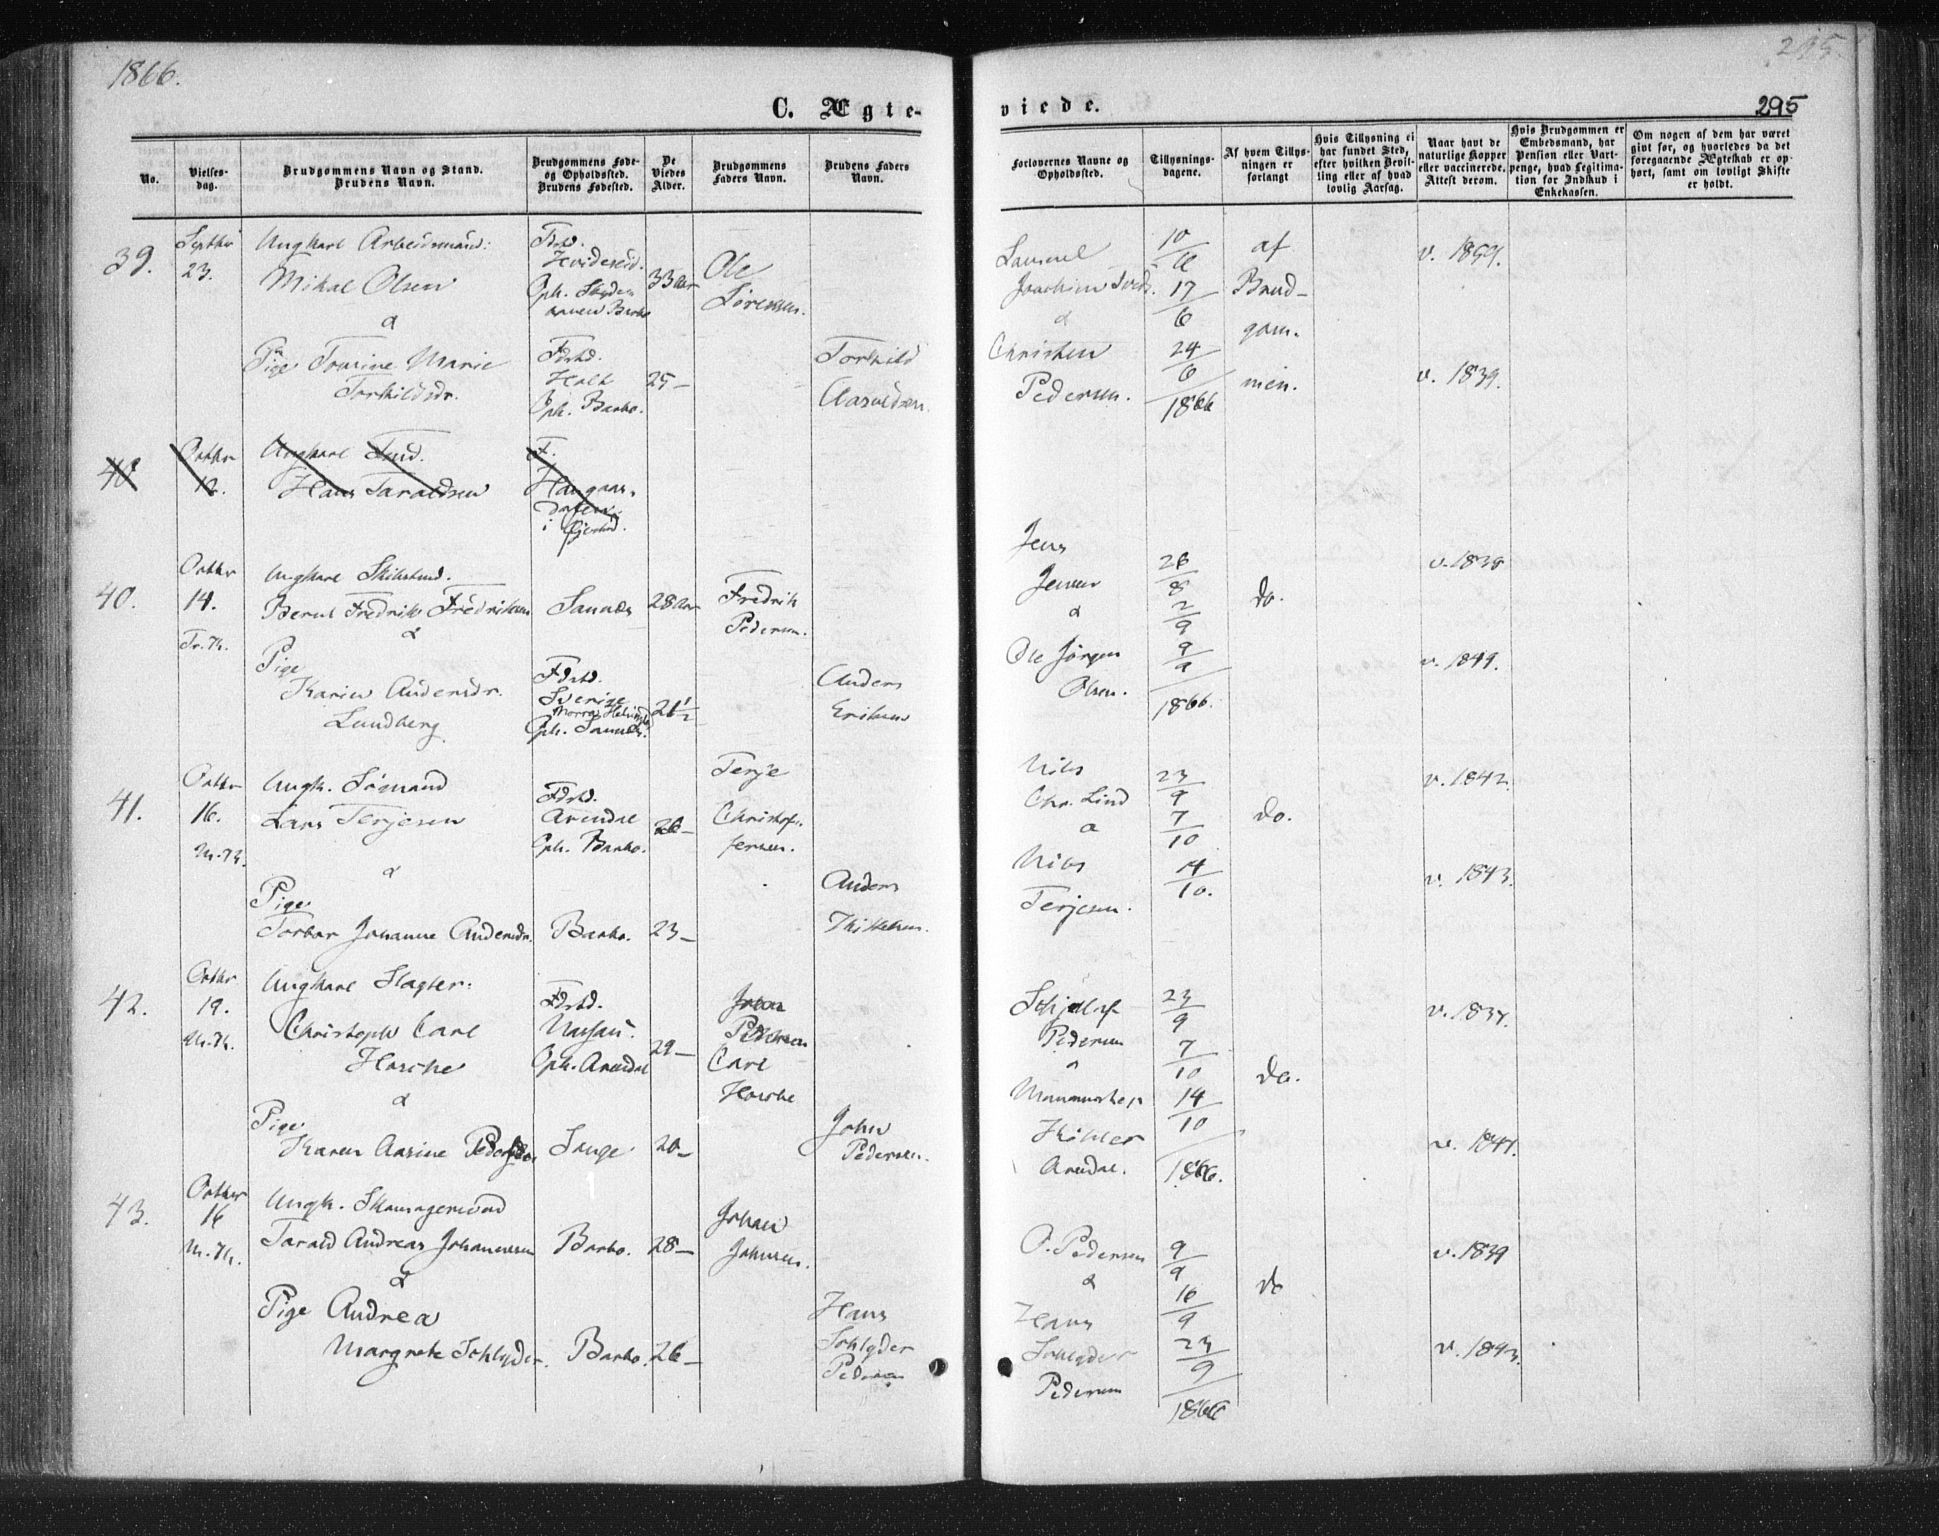 1866.
295.
C. Ægte-
viede.
295
No.
Vielses-
dag.
Brudgommens Navn og Stand.
Brudens Navn.
Brudgommens Føde-
og Opholdssted.
Brudens Fødested.
De
Viedes
Alder.
Brudgommens
Faders Navn.
Brudens Faders
Navn.
Forlovernes Navne og
Opholdssted.
Tillysnings-
dagene.
Af hvem Tillys-
ningen er
forlangt
Hvis Tillysning ei
har fundet Sted,
efter hvilken Bevil-
ling eller af hvad
lovlig Aarsag.
Naar havt de
naturlige Kopper
eller vaccinerede.
Attest derom.
Hvis Brudgommen er
Embedsmand, har
Pension eller Vart-
penge, hvad Legitima-
tion for Indskud i
Enkekassen.
Om nogen af dem har været
givt før, og hvorledes da det
foregaaende Ægteskab er op-
hørt, samt om lovligt Skifte
er holdt.
39.
Septbr
23.
Ungkarl Arbeidsmand:
Mikal Olsen
&
Pige Tomine Marie
Torkildsdr.
Fdstd.
Hvideseid.
Oph.
Barbo
Fdstd.
Holt
Oph. Barbo.
33 Aar
25 –
Ole
Sørensen.
Torkild
Aasuldsen.
Joachim
&
Christen
Pedersen.
10/6
17/6
24/6
1866
af
Brud-
gom-
men.
v. 1839.
40
Octbr
12.
Ungkarl
Hans Taraldsen
F.
i Øjestad.
40.
Octbr
14.
Tr. K.
Ungkarl
Bernt Fredrik Fredriksen
&
Pige
Karin Andersdr.
Lundberg.
Fdstd.
Sverige
28 Aar
21½
Fredrik
Pedersen.
Anders
Eriksen
Jens
Jensen
&
Ole Jørgen
Olsen.
26/8
2/9
9/9
1866.
do.
v. 1838
v. 1849.
41.
Octbr
16.
Ungk. Sømand
Lars Terjesen
&
Pige
Torbor Johanne Andersdr.
Fdstd.
Arendal
Oph. Barbo.
Barbo.
26 –
23 –
Terje
Christof-
fersen.
Anders
Thikelsen.
Nils
Chr. Lind
&
Nils
Terjesen.
23/9
7/10
14/10.
do.
v. 1842.
v. 1843.
42.
Octbr
19.
Ungkarl Slagter:
Christoph Carl
Hasche
&
Pige
Karen Aasine Pedersdr.
Fdstd.
Nassau.
Oph. Arendal
29 –
20 –
Johan
Pedersen
Carl
Hasche
John
Pedersen.
Pedersen
&
Köhler
Arendal.
23/9
7/10
14/10
1866.
do.
v. 1837.
v. 1847.
43.
Octbr
16
Ungk.
Tarald Andreas Johannesen
&
Pige Andrea
Margrete Schlyder.
Barbo.
Barbo.
28 –
26 –
Johan
Johnsen.
Hans
Schlyder
Pedersen
O. Pedersen
&
Hans
Schlyder
Pedersen
9/9
16/9
23/9
1866
do
v. 1839
v. 1843.